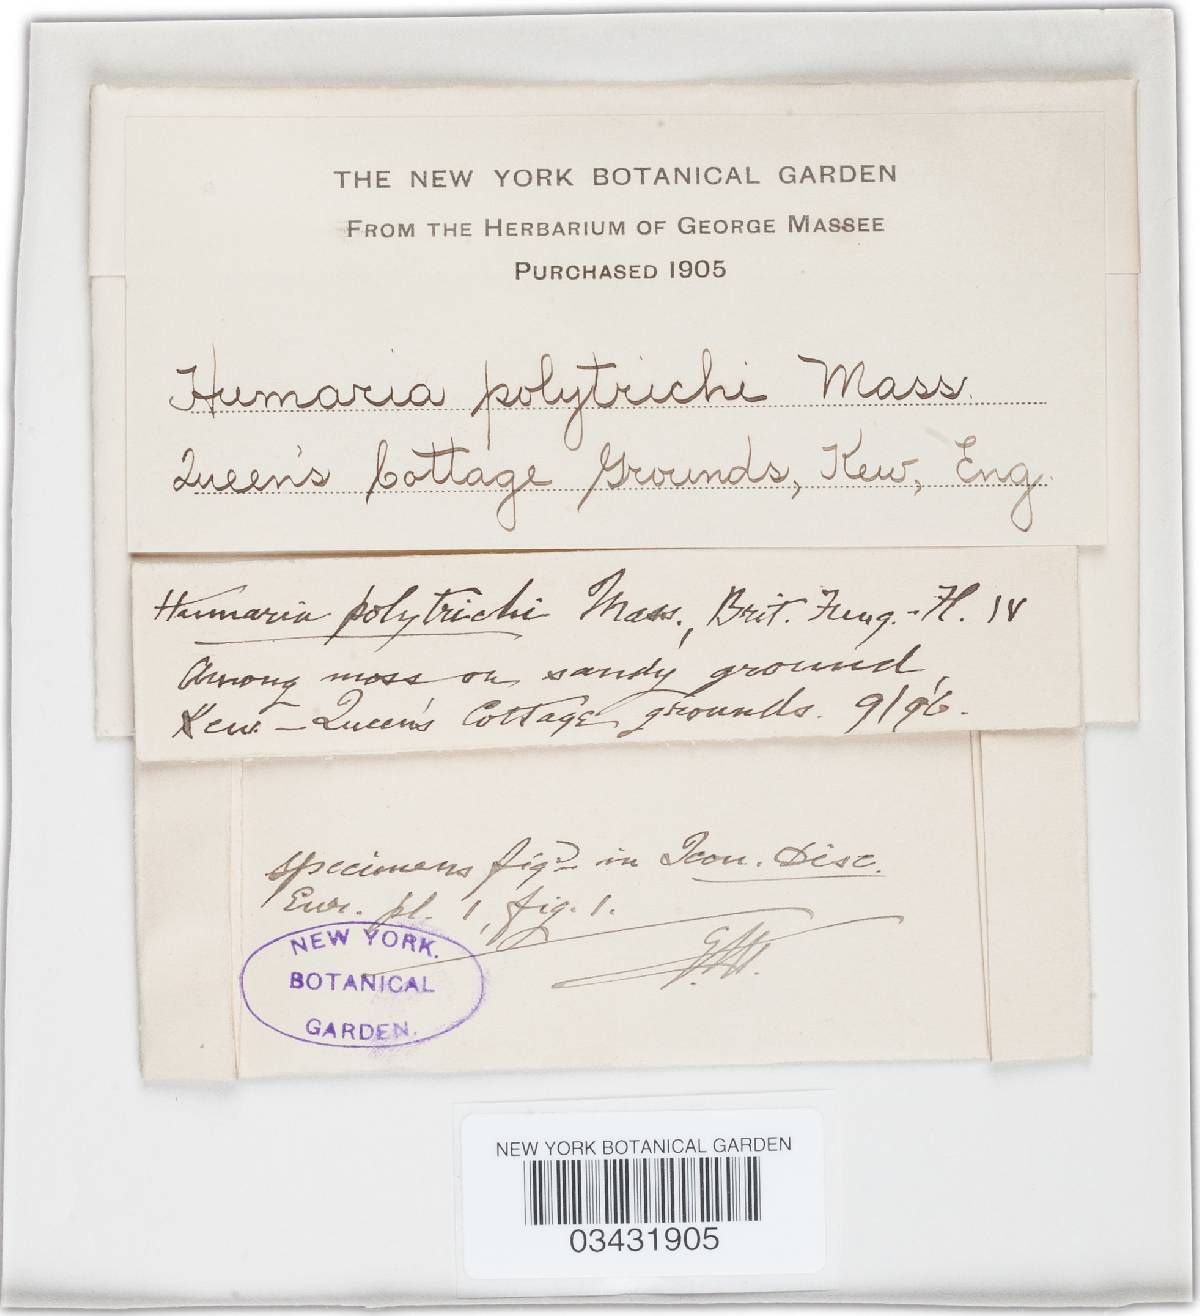 THE NEW YORK BOTANICAL GARDEN
FROM THE HERBARIUM OF GEORGE MASSEE
PURCHASED 1905
Humaria polytrichi Mass.
Queen's Cottage Grounds, Kew, Eng.
Humaria polytrichi Mass., Brit. Fung.-Fl. IV
Among moss on sandy ground,
Kew - Queen's Cottage grounds. 9/96.
Specimens figd in Icon. Disc.
Eur. pl. 1, fig. 1.
NEW YORK.
BOTANICAL
GARDEN.
NEW YORK BOTANICAL GARDEN
03431905